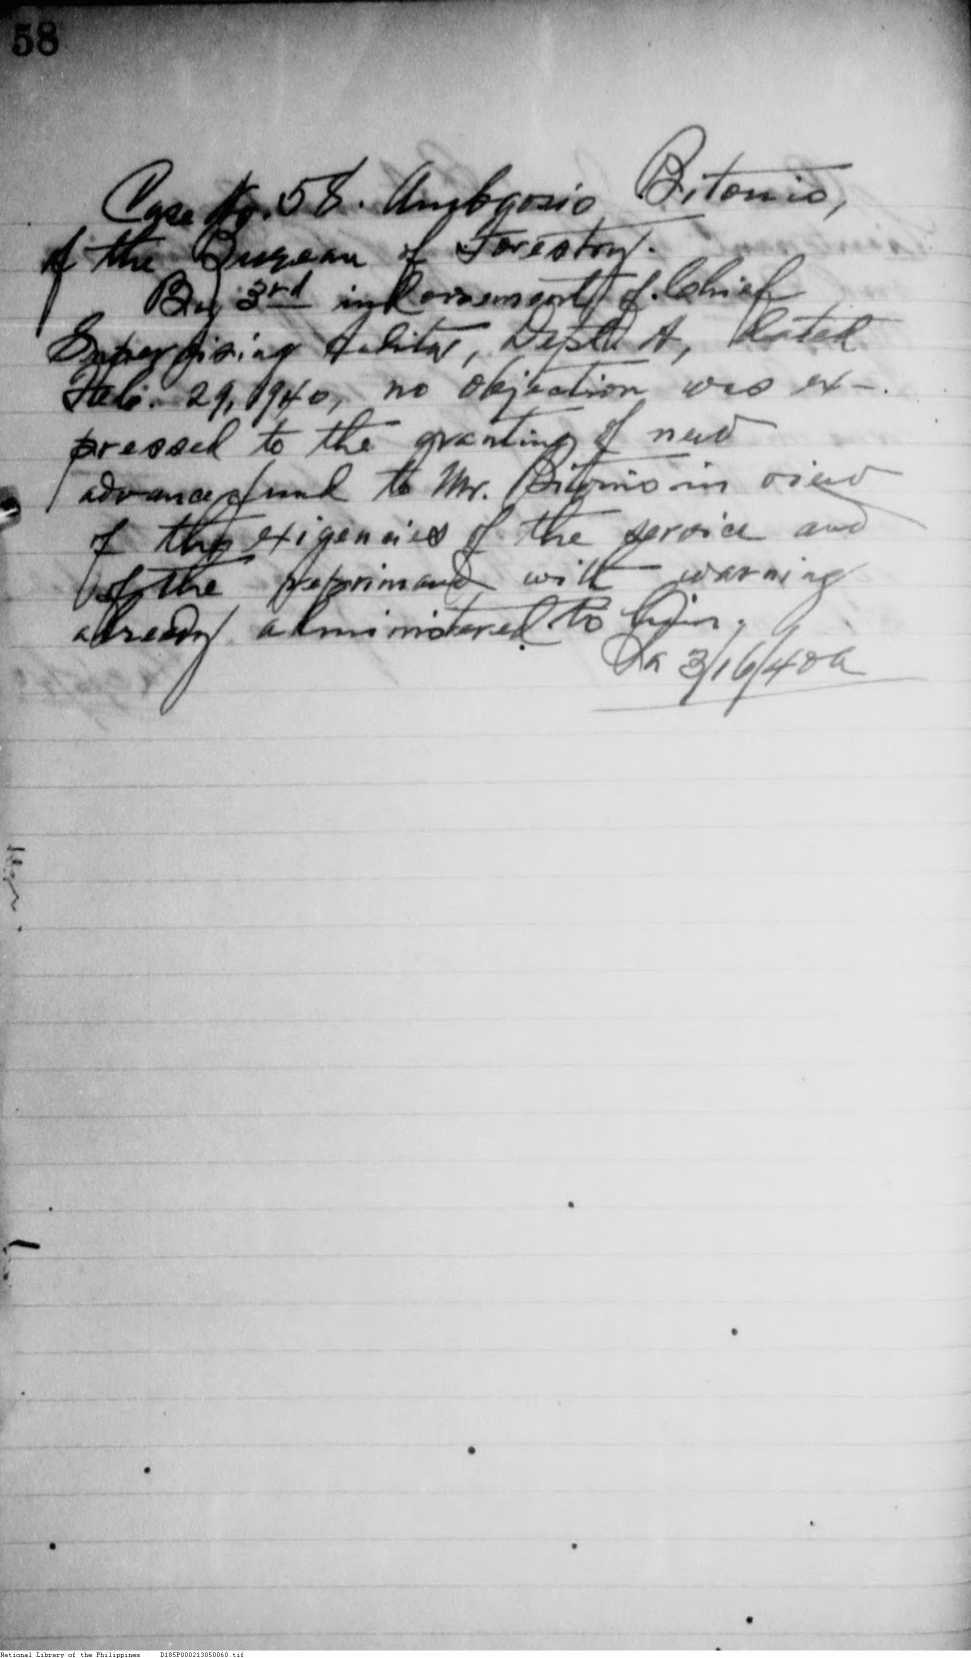 58
Case No. 58. Ambrosio Bitonio,
of the Bureau of Forestry.
By 3rd indorsement of Chief
Supervising Auditor, Dept. A, dated
Feb. 29, 1940, no objection was ex-
pressed to the granting of new
advance fund to Mr. Bitonio in view
of the exigencies of the service and
of the reprimand with warning
already administered to him.
3/16/40
National Library of the Philippines D185P000213050060.tif